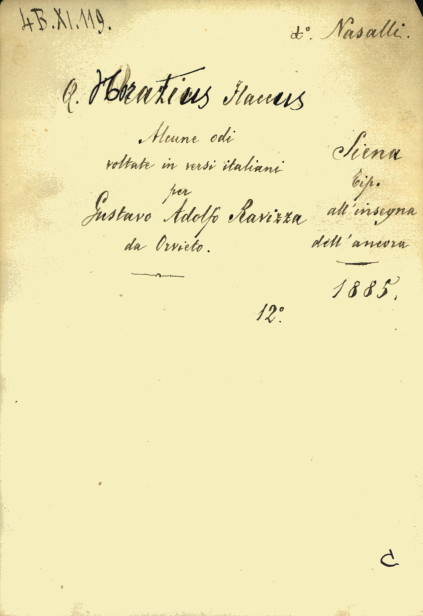 4B.XI.119.
d.º Nasalli.
Q. Horatius Flaccus
Alcune odi
voltate in versi italiani
per
Gustavo Adolfo Ravizza
da Orvieto.
Siena
Tip.
all'insegna
dell'ancora
1885.
12º.
C